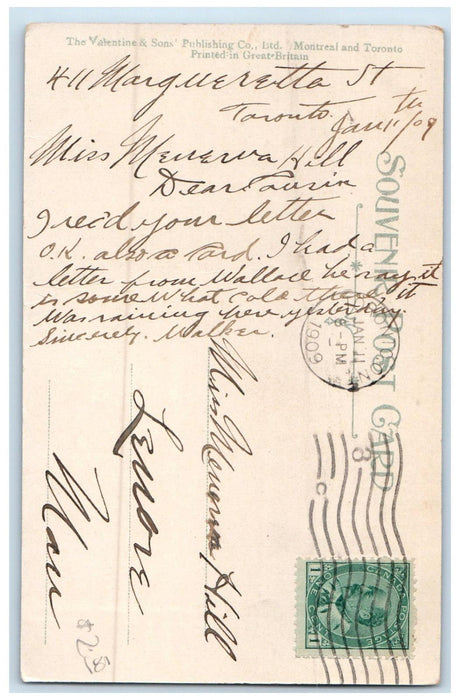 The Valentine & Sons' Publishing Co., Ltd. Montreal and Toronto
Printed in Great Britain
411 Margueretta St
Toronto. Jan 11th/09
Miss Menerva Hill
Dear Cousin
I rec'd your letter
O.K. also a card. I had a
letter from Wallace he says it
is some what cold there, it
was raining here yesterday.
Sincerely. Walker.
SOUVENIR POST CARD
JAN 11
9-PM
1909
Miss Menerva Hill
Lenore
Man
CANADA POSTAGE
1 1
ONE CENT